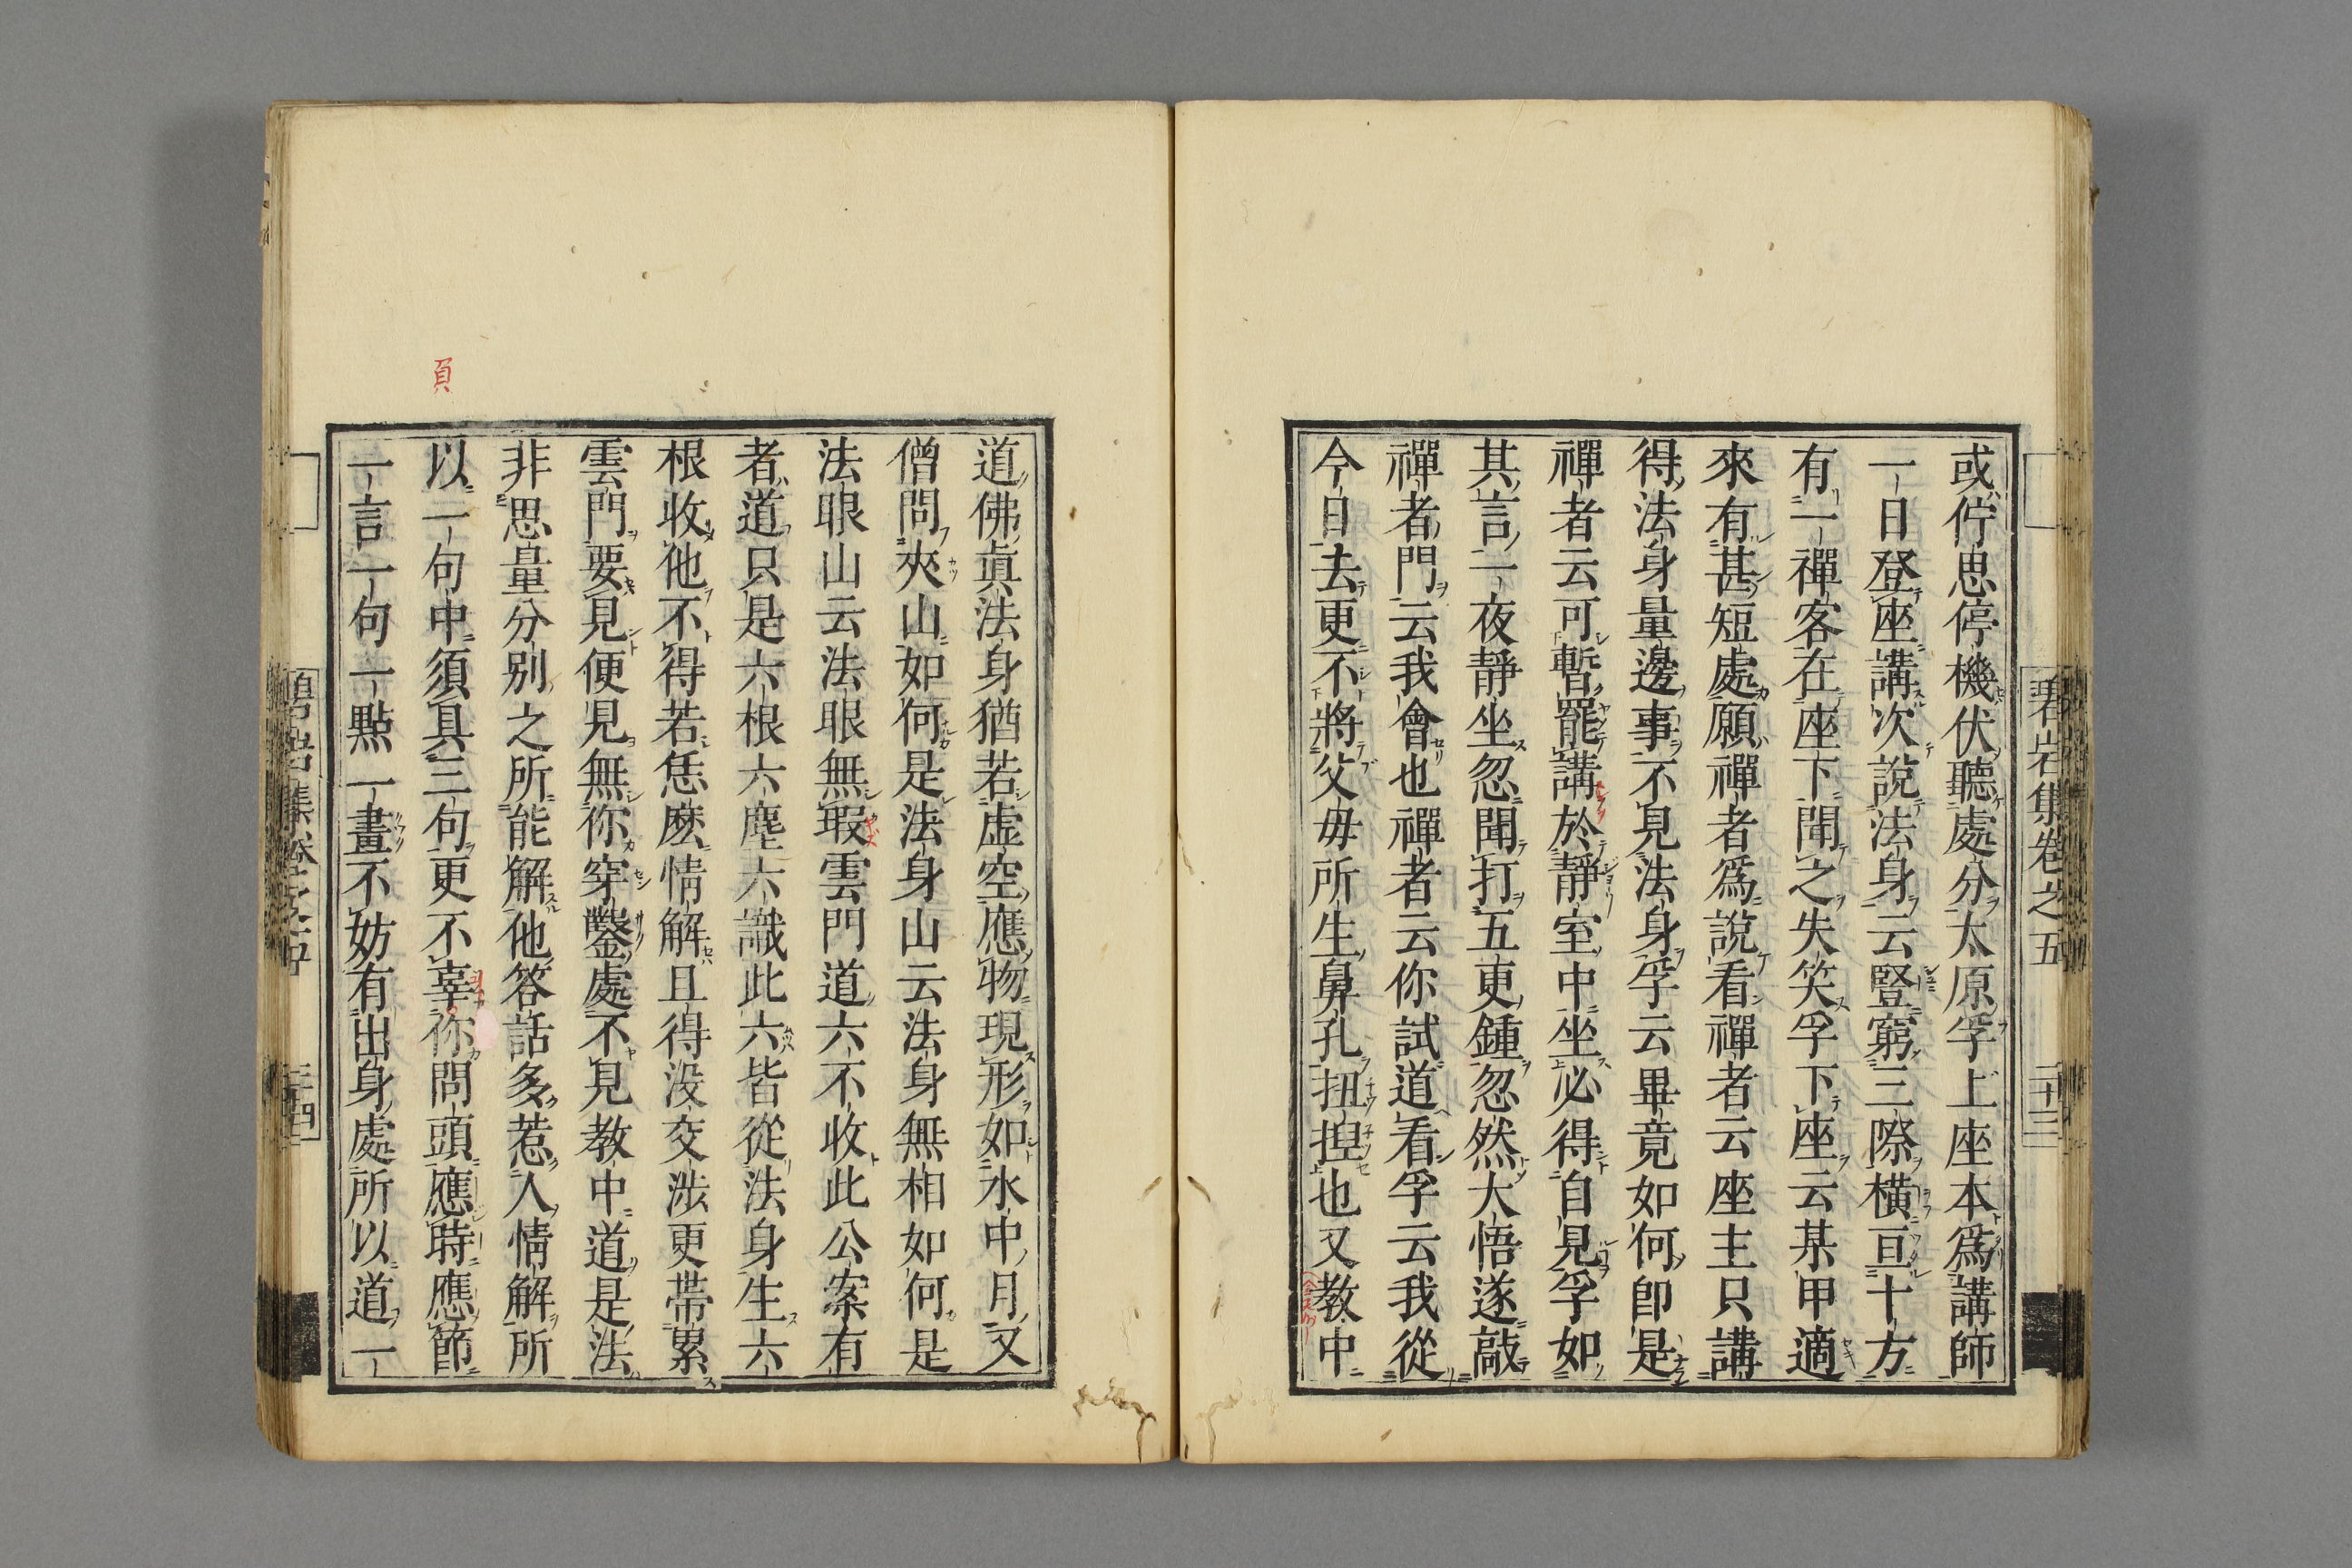 碧岩集卷之五
二十三
或佇思停機伏聽處分太原孚上座本爲講師
一日登座講次說法身云豎窮三際橫亘十方
有一禪客在座下聞之失笑孚下座云某甲適
來有甚短處願禪者爲說看禪者云座主只講
得法身量邊事不見法身孚云畢竟如何卽是
禪者云可暫罷講於靜室中坐必得自見孚如
其言一夜靜坐忽聞打五更鍾忽然大悟遂敲
禪者門云我會也禪者云你試道看孚云我從
今日去更不將父母所生鼻孔扭揑也又教中
道佛眞法身猶若虛空應物現形如水中月又
僧問夾山如何是法身山云法身無相如何是
法眼山云法眼無瑕雲門道六不收此公案有
者道只是六根六塵六識此六皆從法身生六
根收他不得若恁麽情解且得沒交涉更帶累
雲門要見便見無你穿鑿處不見教中道是法
非思量分别之所能解他答話多惹人情解所
以一句中須具三句更不辜你問頭應時應節
一言一句一點一畫不妨有出身處所以道一
負